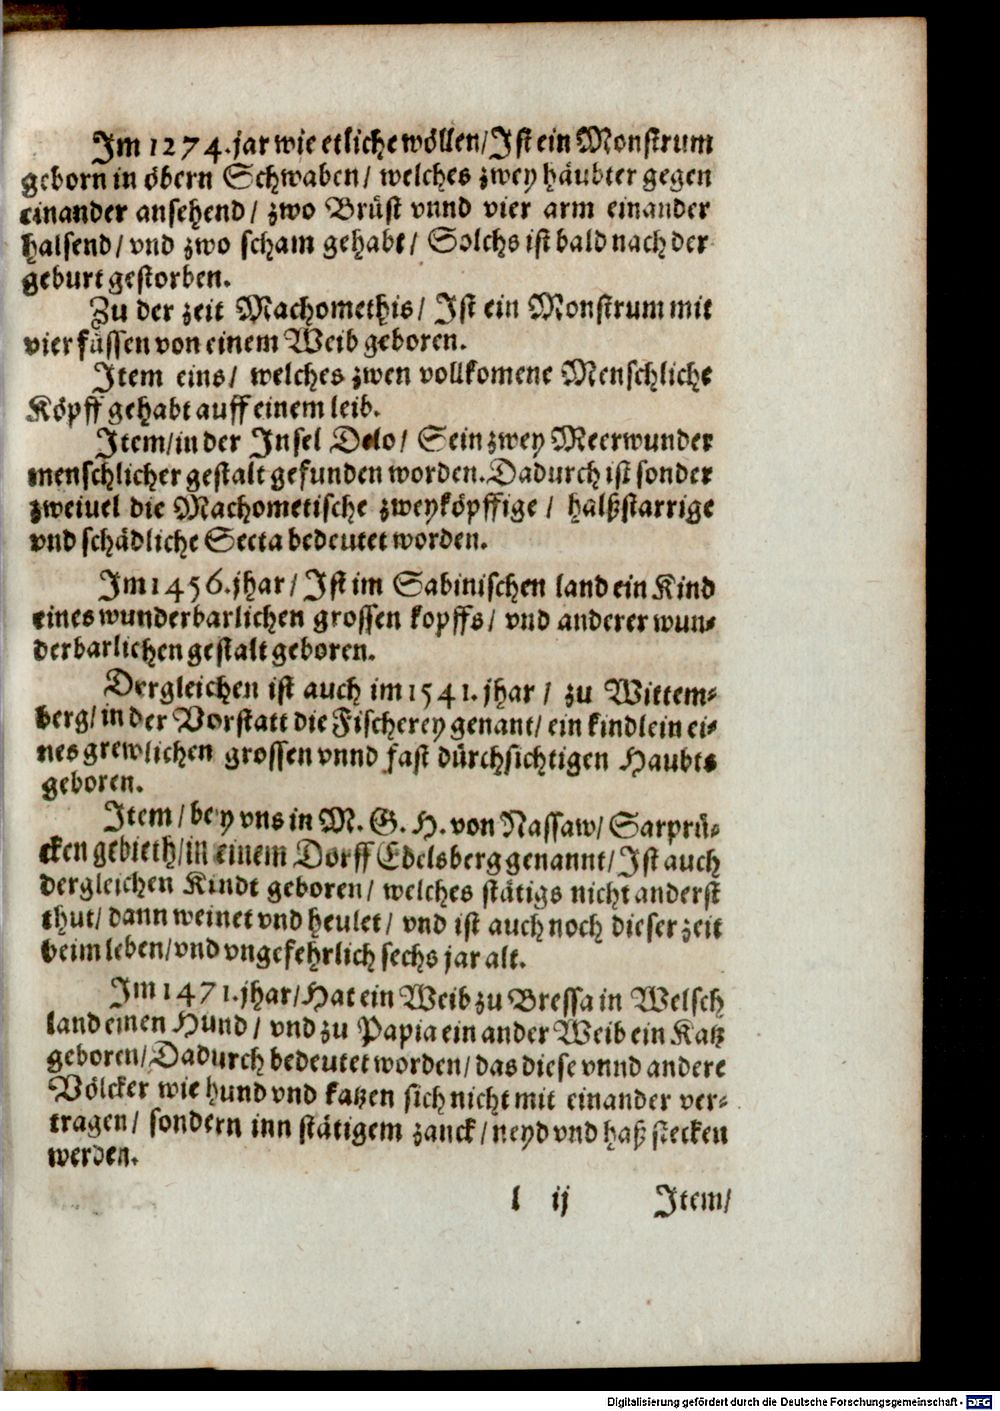 Im 1274. jar wie etliche wöllen/ Ist ein Monstrum
geborn in öbern Schwaben/ welches zwey häubter gegen
einander ansehend/ zwo Brüst vnnd vier arm einander
halsend/ vnd zwo scham gehabt/ Solchs ist bald nach der
geburt gestorben.
Zu der zeit Machomethis/ Ist ein Monstrum mit
vier füssen von einem Weib geboren.
Item eins/ welches zwen vollkomene Menschliche
Köpff gehabt auff einem leib.
Item/ in der Insel Delo/ Sein zwey Meerwunder
menschlicher gestalt gefunden worden. Dadurch ist sonder
zweiuel die Machometische zweyköpffige/ halßstarrige
vnd schädliche Secta bedeutet worden.
Im 1456. jhar/ Ist im Sabinischen land ein Kind
eines wunderbarlichen grossen kopffs/ vnd anderer wun-
derbarlichen gestalt geboren.
Dergleichen ist auch im 1541. jhar/ zu Wittem-
berg/ in der Vorstatt die Fischerey genant/ ein kindlein ei-
nes grewlichen grossen vnnd fast dürchsichtigen Haubts
geboren.
Item/ bey vns in M. G. H. von Nassaw/ Sarprü-
cken gebieth/ in einem Dorff Edelsberg genannt/ Ist auch
dergleichen Kindt geboren/ welches stätigs nicht anderst
thut/ dann weinet vnd heulet/ vnd ist auch noch dieser zeit
beim leben/ vnd vngefehrlich sechs jar alt.
Im 1471. jhar/ Hat ein Weib zu Bressa in Welsch
land einen Hund/ vnd zu Papia ein ander Weib ein Katz
geboren/ Dadurch bedeutet worden/ das diese vnnd andere
Völcker wie hund vnd katzen sich nicht mit einander ver-
tragen/ sondern inn stätigem zanck/ neyd vnd haß stecken
werden.
l ij Item/
Digitalisierung gefördert durch die Deutsche Forschungsgemeinschaft - DFG